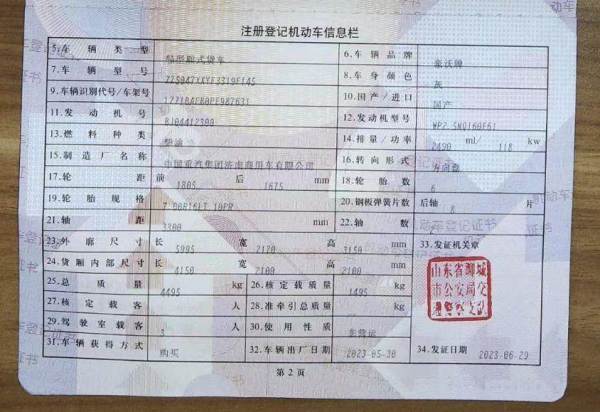 注册登记机动车信息栏
5.车辆类型 轻型厢式货车 6.车辆品牌 豪沃牌
7.车辆型号 8.车身颜色 灰
9.车辆识别代号/车架号 10.国产/进口 国产
11.发动机号 12.发动机型号
13.燃料种类 柴油 14.排量/功率 2490 ml/ 118 kw
15.制造厂名称 中国重汽集团济南商用车有限公司 16.转向形式 方向盘
17.轮距 前 1805 后 1675 mm 18.轮胎数 6
19.轮胎规格 7.00R16LT 10PR 20.钢板弹簧片数 后轴 8 片
21.轴距 3300 mm 22.轴数
23.外廓尺寸 长 5995 宽 2120 高 3150 mm 33.发证机关章
24.货厢内部尺寸 长 4150 宽 2100 高 2100 mm
25.总质量 4495 kg 26.核定载质量 1495 kg
27.核定载客 人 28.准牵引总质量 kg
29.驾驶室载客 3 人 30.使用性质 非营运
31.车辆获得方式 购买 32.车辆出厂日期 2023-05-30 34.发证日期 2023-06-29
山东省聊城
市公安局交
第2页